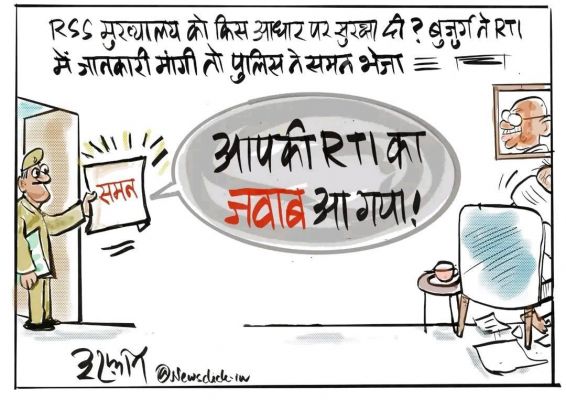 RSS मुख्यालय को किस आधार पर सुरक्षा दी? बुजुर्ग ने RTI
में जानकारी मांगी तो पुलिस ने समन भेजा
समन
आपकी RTI का
जवाब आ गया!
इरफ़ान
@Newsclick.in